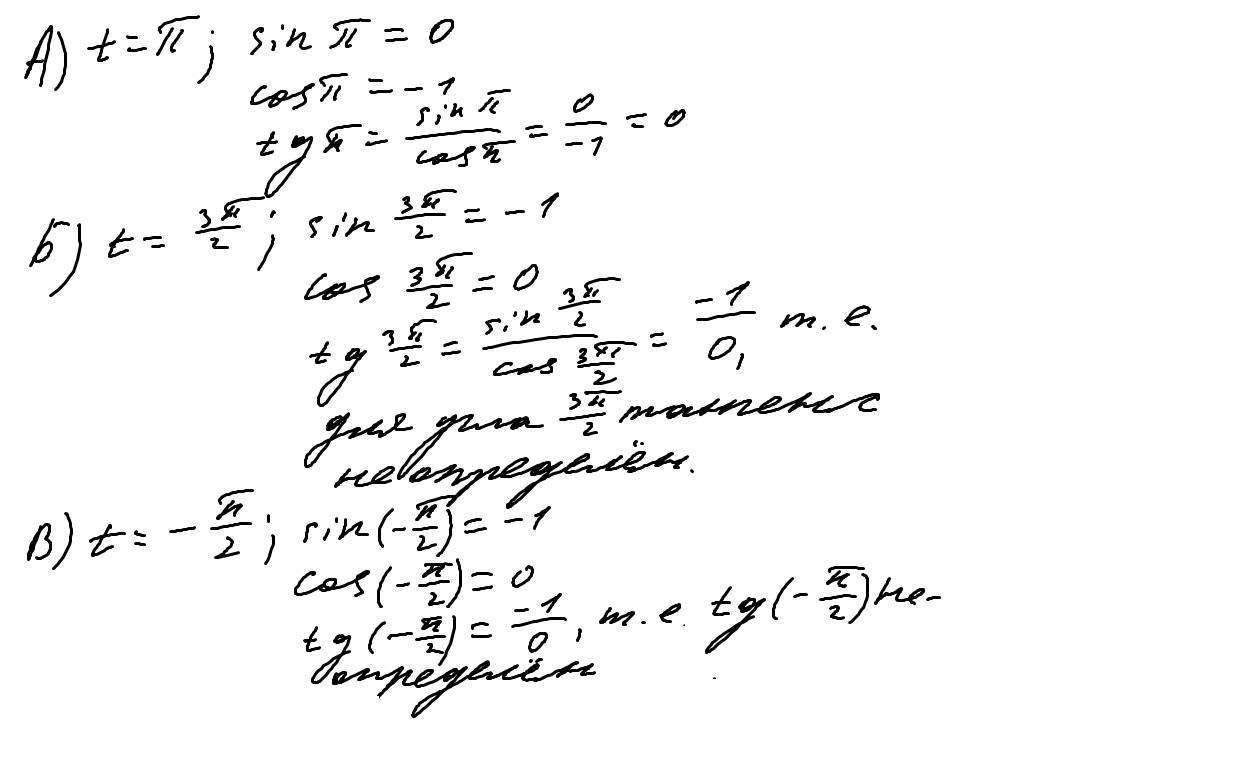 А) t = π; sin π = 0
cos π = -1
tg π = sin π / cos π = 0 / -1 = 0
Б) t = 3π/2; sin 3π/2 = -1
cos 3π/2 = 0
tg 3π/2 = sin 3π/2 / cos 3π/2 = -1 / 0, т. е.
для угла 3π/2 тангенс
не определён.
В) t = -π/2; sin(-π/2) = -1
cos(-π/2) = 0
tg(-π/2) = -1/0, т. е. tg(-π/2) не-
определён